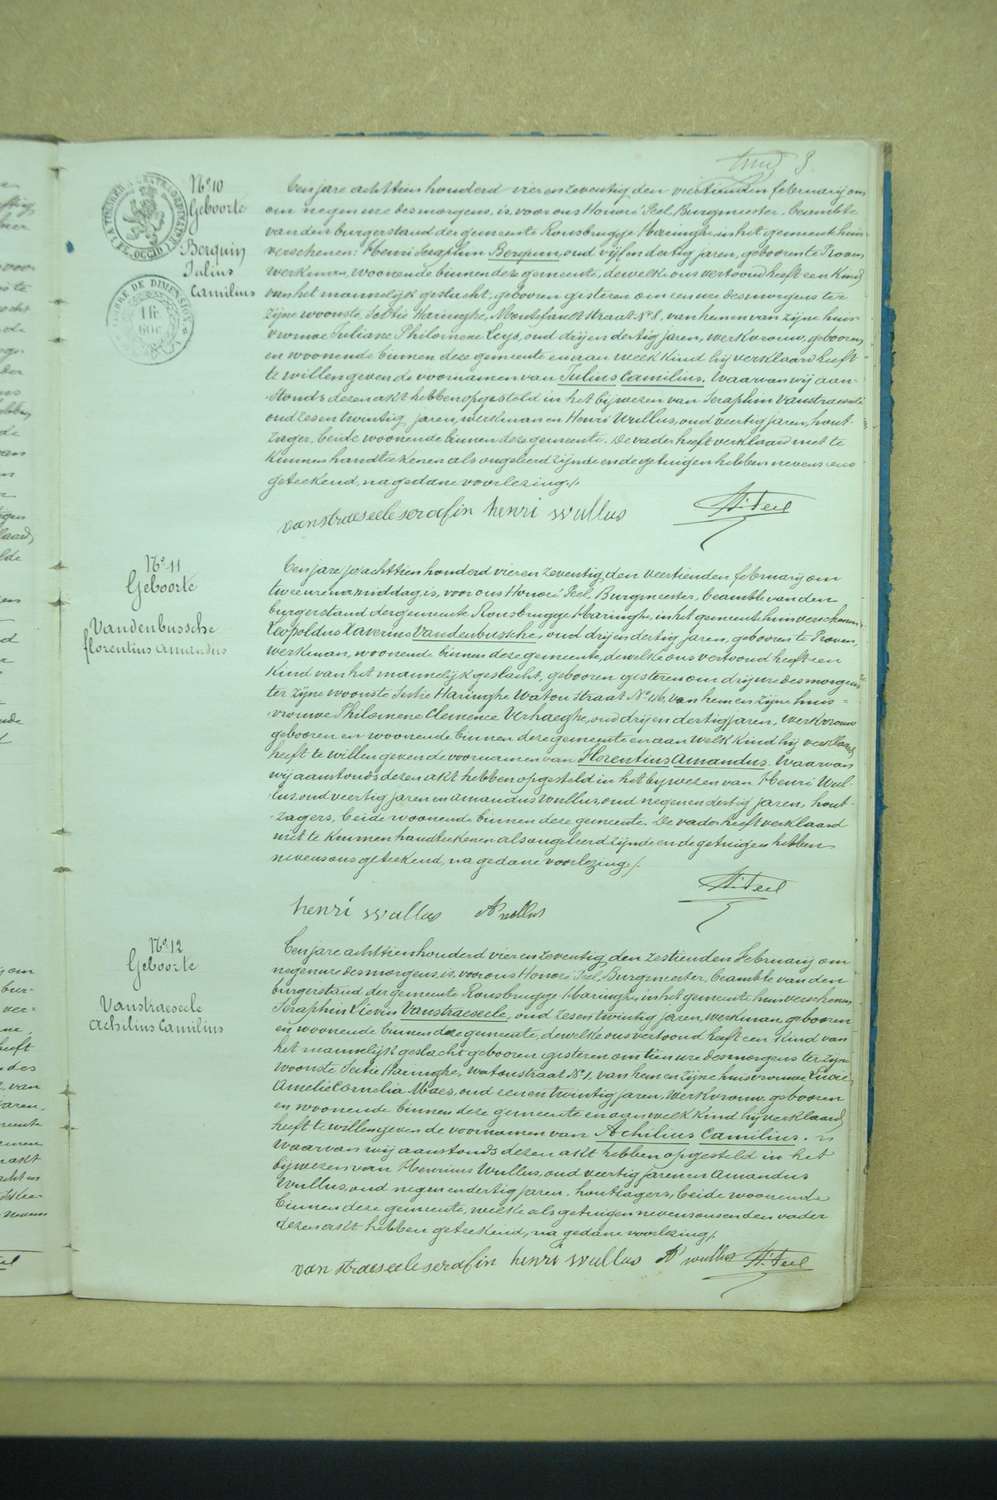 N° 10
Geboorte
Berquin
Julius
Camilius
Een jare achttien honderd vier en zeventig den veertienden february om
om negen ure des morgens, is voor ons Honoré Peel, Burgmeester, beambte
van den burgerstand der gemeente Rousbrugge Haringhe, in het gemeente huis
verschenen: Henri Seraphin Berquin, oud vijf en dertig jaren, geboren te
werkman, woonende binnen deze gemeente, dewelke ons vertoond heeft een kind
van het mannelijk geslacht, gebooren gisteren om een ure des morgens ter
zijne woonste, Sectie Haringhe, straat N° 8, van hem en van zijne huis-
vrouwe Juliane Philomene Leys, oud drij en dertig jaren, werkvrouw, gebooren
en woonende binnen deze gemeente en aan welk kind hij verklaard heeft
te willen geven de voornamen van Julius Camilius. Waarvan wij aan-
stonds dezen akt hebben opgesteld in het bijwezen van Seraphin Vanstraeseele
oud zes en twintig jaren, werkman en Henri Wullus, oud veertig jaren, hout-
zager, beide woonende binnen deze gemeente. De vader heeft verklaard niet te
kunnen handteekenen als ongeleerd zijnde en de getuigen hebben nevens ons
geteekend, na gedane voorlezing /.
vanstraeseele serafin henri wullus H. Peel
N° 11
Geboorte
Vandenbussche
florentius amandus
Een jare achttien honderd vier en zeventig, den veertienden february om
twee ure namiddag is, voor ons Honoré Peel, Burgmeester, beambte van den
burgerstand der gemeente Rousbrugge Haringhe, in het gemeente huis verschenen
Leopoldus Xaverius Vandenbussche, oud drij en dertig jaren, gebooren te Proven,
werkman, woonende binnen deze gemeente, dewelke ons vertoond heeft een
kind van het mannelijk geslacht, gebooren gisteren om drij ure des morgens
ter zijne woonste Sectie Haringhe Watou straat N° 46, van hem en zijne huis-
vrouwe Philomene Clemence Verhaeghe, oud drij en dertig jaren, werkvrouw
gebooren en woonende binnen deze gemeente en aan welk kind hij verklaard
heeft te willen geven de voornamen van Florentius Amandus. Waarvan
wij aanstonds dezen akt hebben opgesteld in het bijwezen van Henri Wul-
lus, oud veertig jaren en amandus wullus, oud negen en dertig jaren, hout-
zagers, beide woonende binnen deze gemeente. De vader heeft verklaard
niet te kunnen handteekenen als ongeleerd zijnde en de getuigen hebben
nevens ons geteekend, na gedane voorlezing /.
H. Peel
henri wullus A wullus
N° 12
Geboorte
Vanstraeseele
Achilius Camilius
Een jare achttien honderd vier en zeventig, den zestienden February om
negen ure des morgens, is voor ons Honoré Peel, Burgmeester, beambte van den
burgerstand der gemeente Rousbrugge Haringhe, in het gemeente huis verschenen
Seraphin Lieven Vanstraeseele, oud zes en twintig jaren, werkman, gebooren
en woonende binnen deze gemeente, dewelke ons vertoond heeft een kind van
het mannelijk geslacht gebooren gisteren om tien ure des morgens ter zijne
woonste Sectie Haringhe, watoustraat N° 1, van hem en zijne huisvrouwe Lucie
Amelie Cornelia Maes, oud een en twintig jaren, werkvrouw, gebooren
en woonende binnen deze gemeente en aan welk kind hij verklaard
heeft te willen geven de voornamen van Achilius Camilius.
Waarvan wij aanstonds dezen akt hebben opgesteld in het
bijwezen van Henrius Wullus, oud veertig jaren en Amandus
Wullus, oud negen en dertig jaren, houtzagers, beide woonende
binnen deze gemeente, welke als getuigen nevens ons en den vader
dezen akt hebben geteekend, na gedane voorlezing /.
vanstraeseele serafin henri wullus A wullus H. Peel